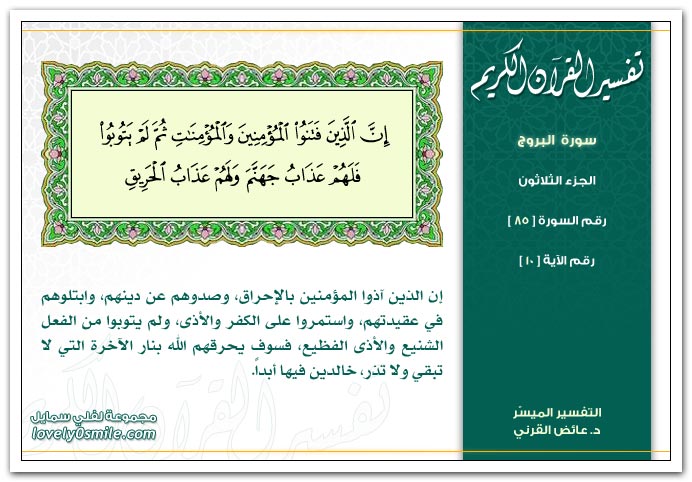 تفسير القرآن الكريم
سورة البروج
الجزء الثلاثون
رقم السورة [ ٨٥ ]
رقم الآية [ ١٠ ]
إِنَّ ٱلَّذِينَ فَتَنُوا۟ ٱلْمُؤْمِنِينَ وَٱلْمُؤْمِنَٰتِ ثُمَّ لَمْ يَتُوبُوا۟
فَلَهُمْ عَذَابُ جَهَنَّمَ وَلَهُمْ عَذَابُ ٱلْحَرِيقِ
إن الذين آذوا المؤمنين بالإحراق، وصدوهم عن دينهم، وابتلوهم
في عقيدتهم، واستمروا على الكفر والأذى، ولم يتوبوا من الفعل
الشنيع والأذى الفظيع، فسوف يحرقهم الله بنار الآخرة التي لا
تبقي ولا تذر، خالدين فيها أبداً.
التفسير الميسّر
د. عائض القرني
مجموعة لفلي سمايل
lovely0smile.com
تفسير القرآن الكريم